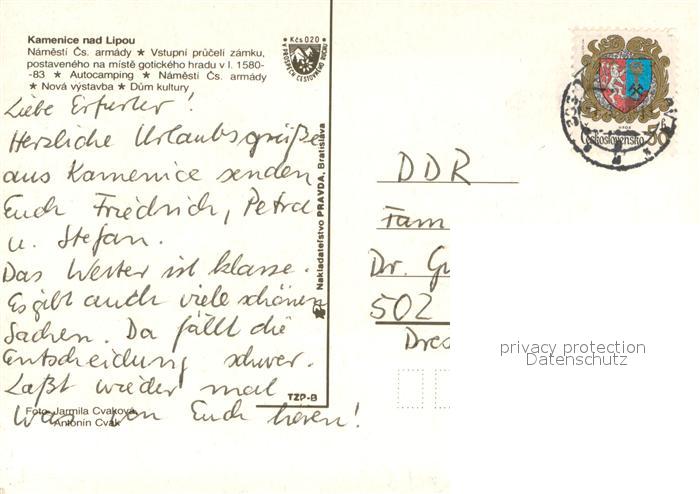 Kamenice nad Lipou
Náměstí Čs. armády ★ Vstupní průčelí zámku,
postaveného na místě gotického hradu v l. 1580-
-83 ★ Autocamping ★ Náměstí Čs. armády
★ Nová výstavba ★ Dům kultury
Kčs 0,20
Liebe Erfurter!
Herzliche Urlaubsgrüße
aus Kamenice senden
Euch Friedrich, Petra
u. Stefan.
Das Wetter ist klasse.
Es gibt auch viele schönen
Sachen. Da fällt die
Entscheidung schwer.
Laßt wieder mal
was von Euch hören!
Foto Jarmila Cvaková
Antonín Cvak
TZP-B
Nakladateľstvo PRAVDA, Bratislava
Československo 50
DDR
Fam
Dr. Gu
502
Dres
privacy protection
Datenschutz